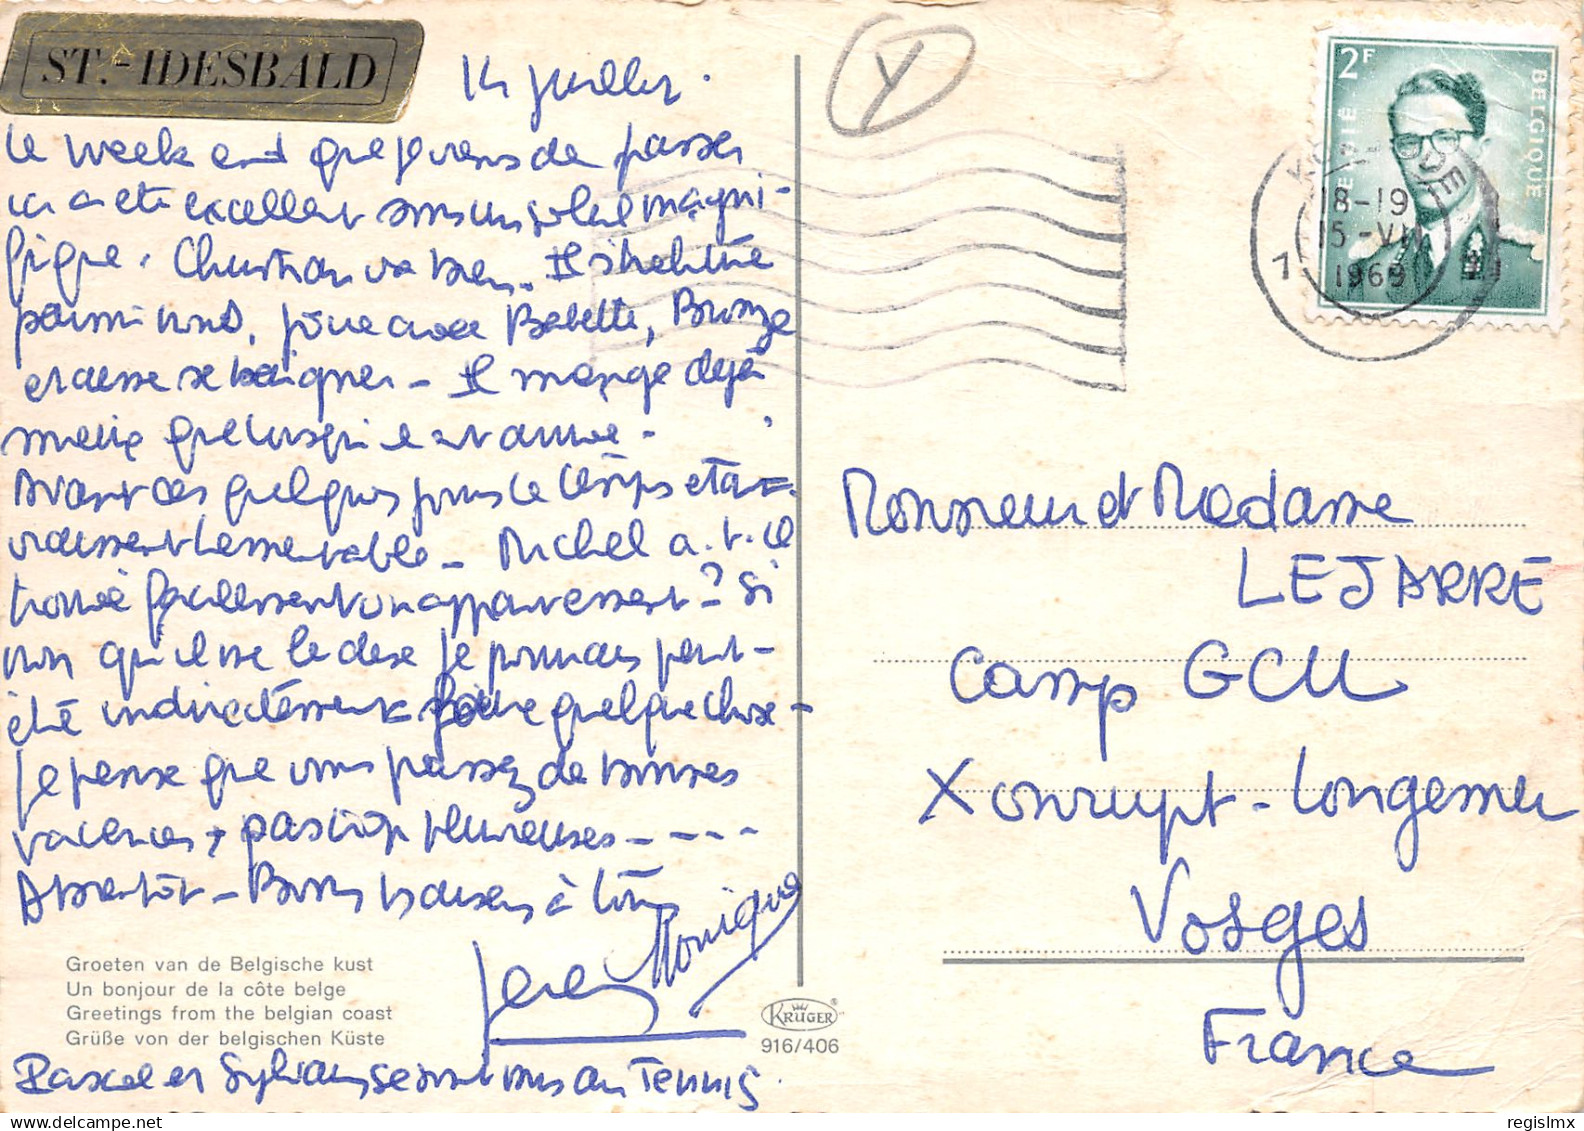 ST.-IDESBALD
14 juillet.
Le week end que je viens de passer
ici a été excellent sous un soleil magni-
fique. Christian va bien. Il s'habitue
parmi nous, joue avec Babette, Bronze
et aime se baigner - Il mange déjà
mieux que lorsqu'il est arrivé.
Avant ces quelques jours le temps était
vraiment lamentable - Michel a-t-il
trouvé facilement un appartement? Si
non qu'il me le dise je pourrais peut-
être indirectement faire quelque chose -
Je pense que vous passez de bonnes
vacances, pastion pluvieuses - - - -
A bientôt - Bons baisers à tous
Monique
Groeten van de Belgische kust
Un bonjour de la côte belge
Greetings from the belgian coast
Grüße von der belgischen Küste
Pascal et Sylviane sont au Tennis.
KRÜGER
916/406
Y
2F
BELGIË BELGIQUE
18-19
15-VII
1969
7
Monsieur et Madame
LEJARRE
Camp GCU
Xonrupt-Longemer
Vosges
France
regislmx